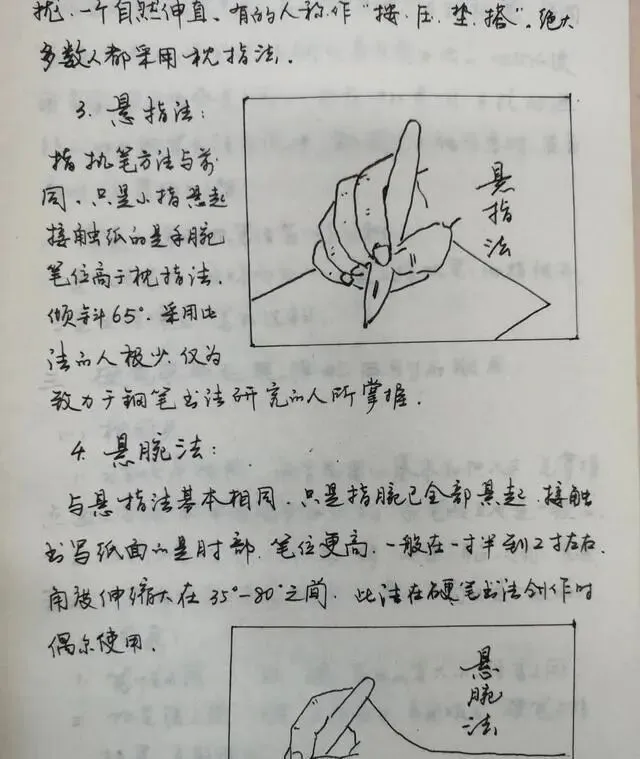 拢,一个自然伸直。有的人称作“按、压、垫、搭”。绝大
多数人都采用枕指法.
3. 悬指法:
指执笔方法与前
同。只是小指悬起
接触纸的是手腕
笔位高于枕指法.
倾斜65°.采用此
法的人极少.仅为
致力于钢笔书法研究的人所掌握.
悬指法
4. 悬腕法:
与悬指法基本相同.只是指腕已全部悬起.接触
书写纸面的是肘部.笔位更高.一般在一寸半到2寸左右.
角度伸缩大在35°-80°之间.此法在硬笔书法创作时
偶尔使用.
悬腕法